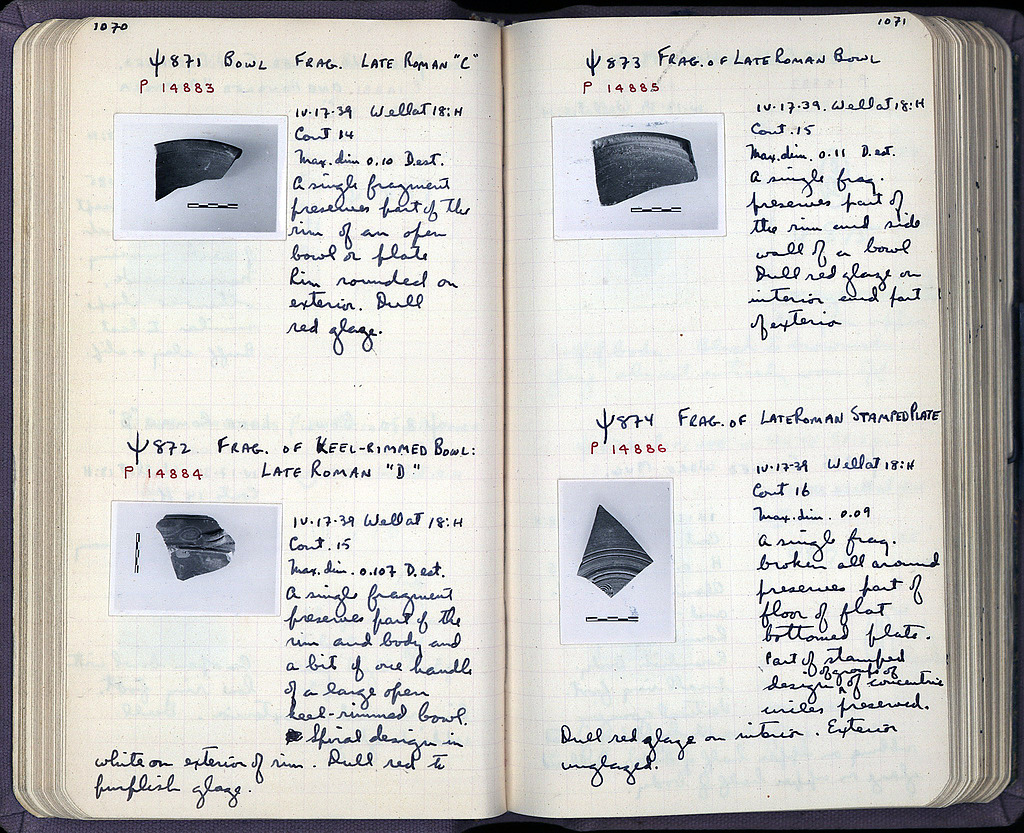 1070
ψ871 BOWL FRAG. LATE ROMAN "C"
P 14883
IV-17-39 Well at 18:H
Cont 14
Max. dim 0.10 D. est.
A single fragment
preserves part of the
rim of an open
bowl or plate
Rim rounded on
exterior. Dull
red glaze.
ψ872 FRAG. OF KEEL-RIMMED BOWL:
LATE ROMAN "D"
P 14884
IV-17-39 Well at 18:H
Cont. 15
Max. dim. 0.107 D. est.
A single fragment
preserves part of the
rim and body and
a bit of one handle
of a large open
keel-rimmed bowl.
Spiral design in
white on exterior of rim. Dull red to
purplish glaze.
1071
ψ873 FRAG. OF LATE ROMAN BOWL
P 14885
IV-17-39. Well at 18:H
Cont. 15
Max. dim. 0.11 D. est.
A single frag.
preserves part of
the rim and side
wall of a bowl
Dull red glaze on
interior and part
of exterior
ψ874 FRAG. OF LATE ROMAN STAMPED PLATE
P 14886
IV-17-39 Well at 18:H
Cont 16
Max. dim. 0.09
A single frag.
broken all around
preserves part of
floor of flat
bottomed plate.
Part of stamped
design of groups of concentric
circles preserved.
Dull red glaze on interior. Exterior
unglazed.